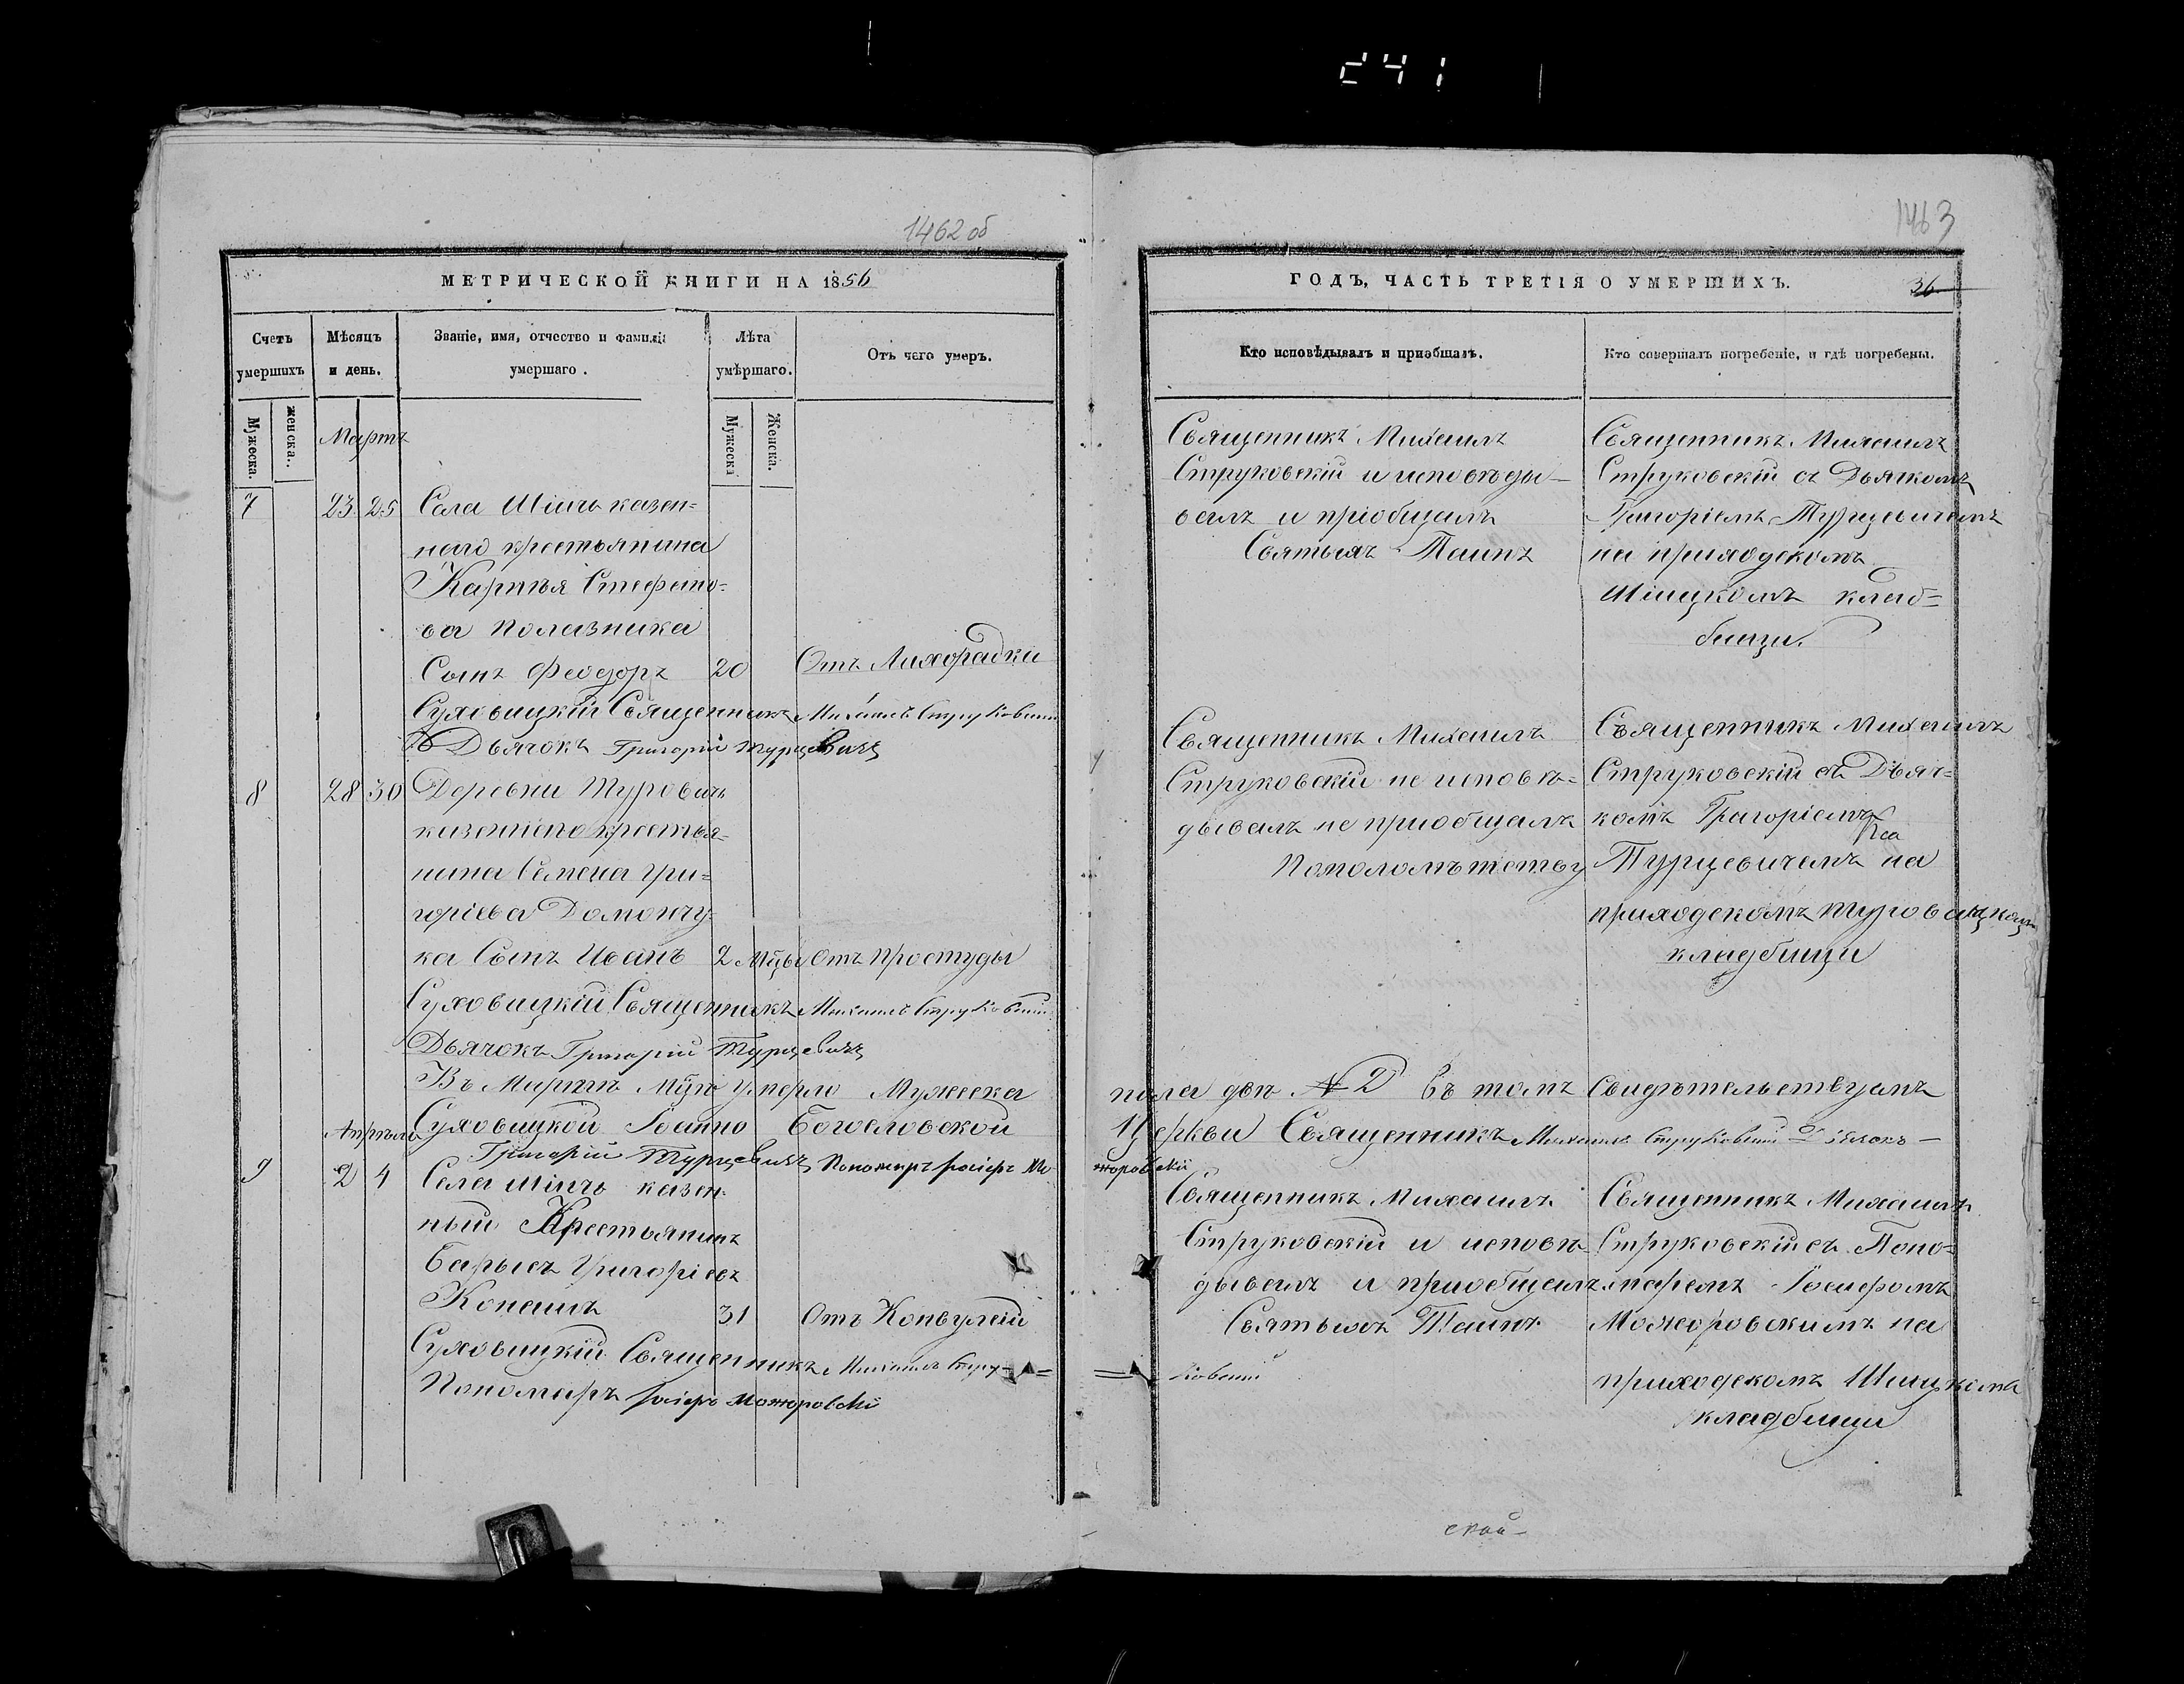 241
1462 об
МЕТРИЧЕСКОЙ КНИГИ НА 1856
Счетъ умершихъ
Мѣсяцъ и день.
Званіе, имя, отчество и фамилія умершаго.
Лѣта умѣршаго.
Отъ чего умеръ.
Мужеска.
женска..
Мужеска
Женска.
Мартъ
7 23 25 Села Шіичь казен=
наго крестьянина
Карпѣя Стефано=
ва Полазника
Сынъ Феодоръ 20 Отъ Лихорадки
Суховицкій Священникъ Михаилъ Струковскій
Дьячокъ Григорій Турцевичъ
8 28 30 Деревни Туровичь
казеннаго крестья=
нина Семена Гри=
горіева Домончу=
ка Сынъ Иванъ 2 Мцы Отъ простуды
Суховицкій Священникъ Михаилъ Струковскій
Дьячокъ Григорій Турцевичъ
Въ Мартѣ Мцѣ умерло Мужеска
Суховицкой Іоанно Богословской
Апрѣль
Григорій Турцевичъ Пономарь Іосифъ Мо
9 2 4 Села Шіичь казен=
ный Крестьянинъ
Барысъ Григоріевъ
Копашъ 31 Отъ Конвулсіи
Суховицкій Священникъ Михаилъ Стру=
Пономарь Іосифъ Можаровскій
1463
ГОДЪ, ЧАСТЬ ТРЕТІЯ О УМЕРШИХЪ.
36
Кто исповѣдывалъ и пріобщалъ.
Кто совершалъ погребеніе, и гдѣ погребены.
Священникъ Михаилъ
Струковскій и исповѣды=
валъ и пріобщалъ
Святыхъ Таинъ
Священникъ Михаилъ
Струковскій съ Дьякомъ
Григоріемъ Турцевичемъ
на приходскомъ
Шіицкомъ клад=
бищи.
Священникъ Михаилъ
Струковскій не исповѣ=
дывалъ не приобщалъ
Пополомъ
Священникъ Михаилъ
Струковскій съ Дьяч=
комъ Григоріемъ
Турцевичемъ на
приходскомъ Туровицкомъ
кладбищи
пола два № 2 въ томъ Свидѣтельствуемъ
Церкви Священникъ Михаилъ Струковскій Дьячокъ
жоровскій
Священникъ Михаилъ
Струковскій и исповѣ=
дывалъ и приобщалъ
Святыхъ Таинъ
=ковскій
Священникъ Михаилъ
Струковскій съ Поно=
маремъ Іосифомъ
Можеровскимъ на
приходскомъ Шіицкомъ
кладбищи
ской